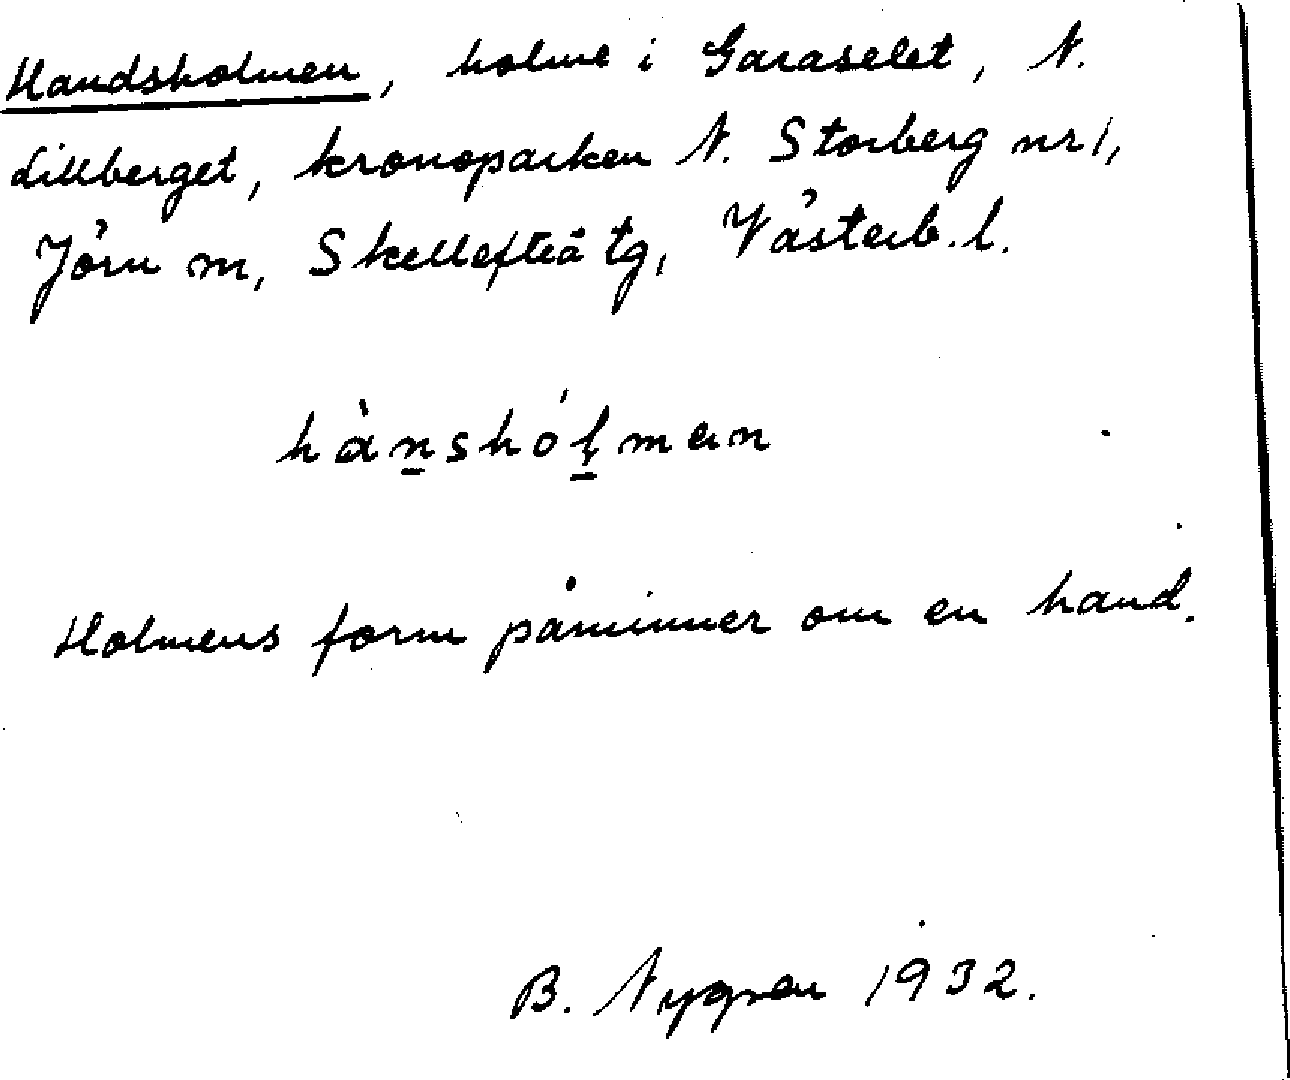 Handsholmen, holme i Garaselet, N.
Lillberget, kronoparken N. Storberg nr 1,
Jörn sn, Skellefteå tg, Västerb. l.
hànshólmen
Holmens form påminner om en hand.
B. Nygren 1932.